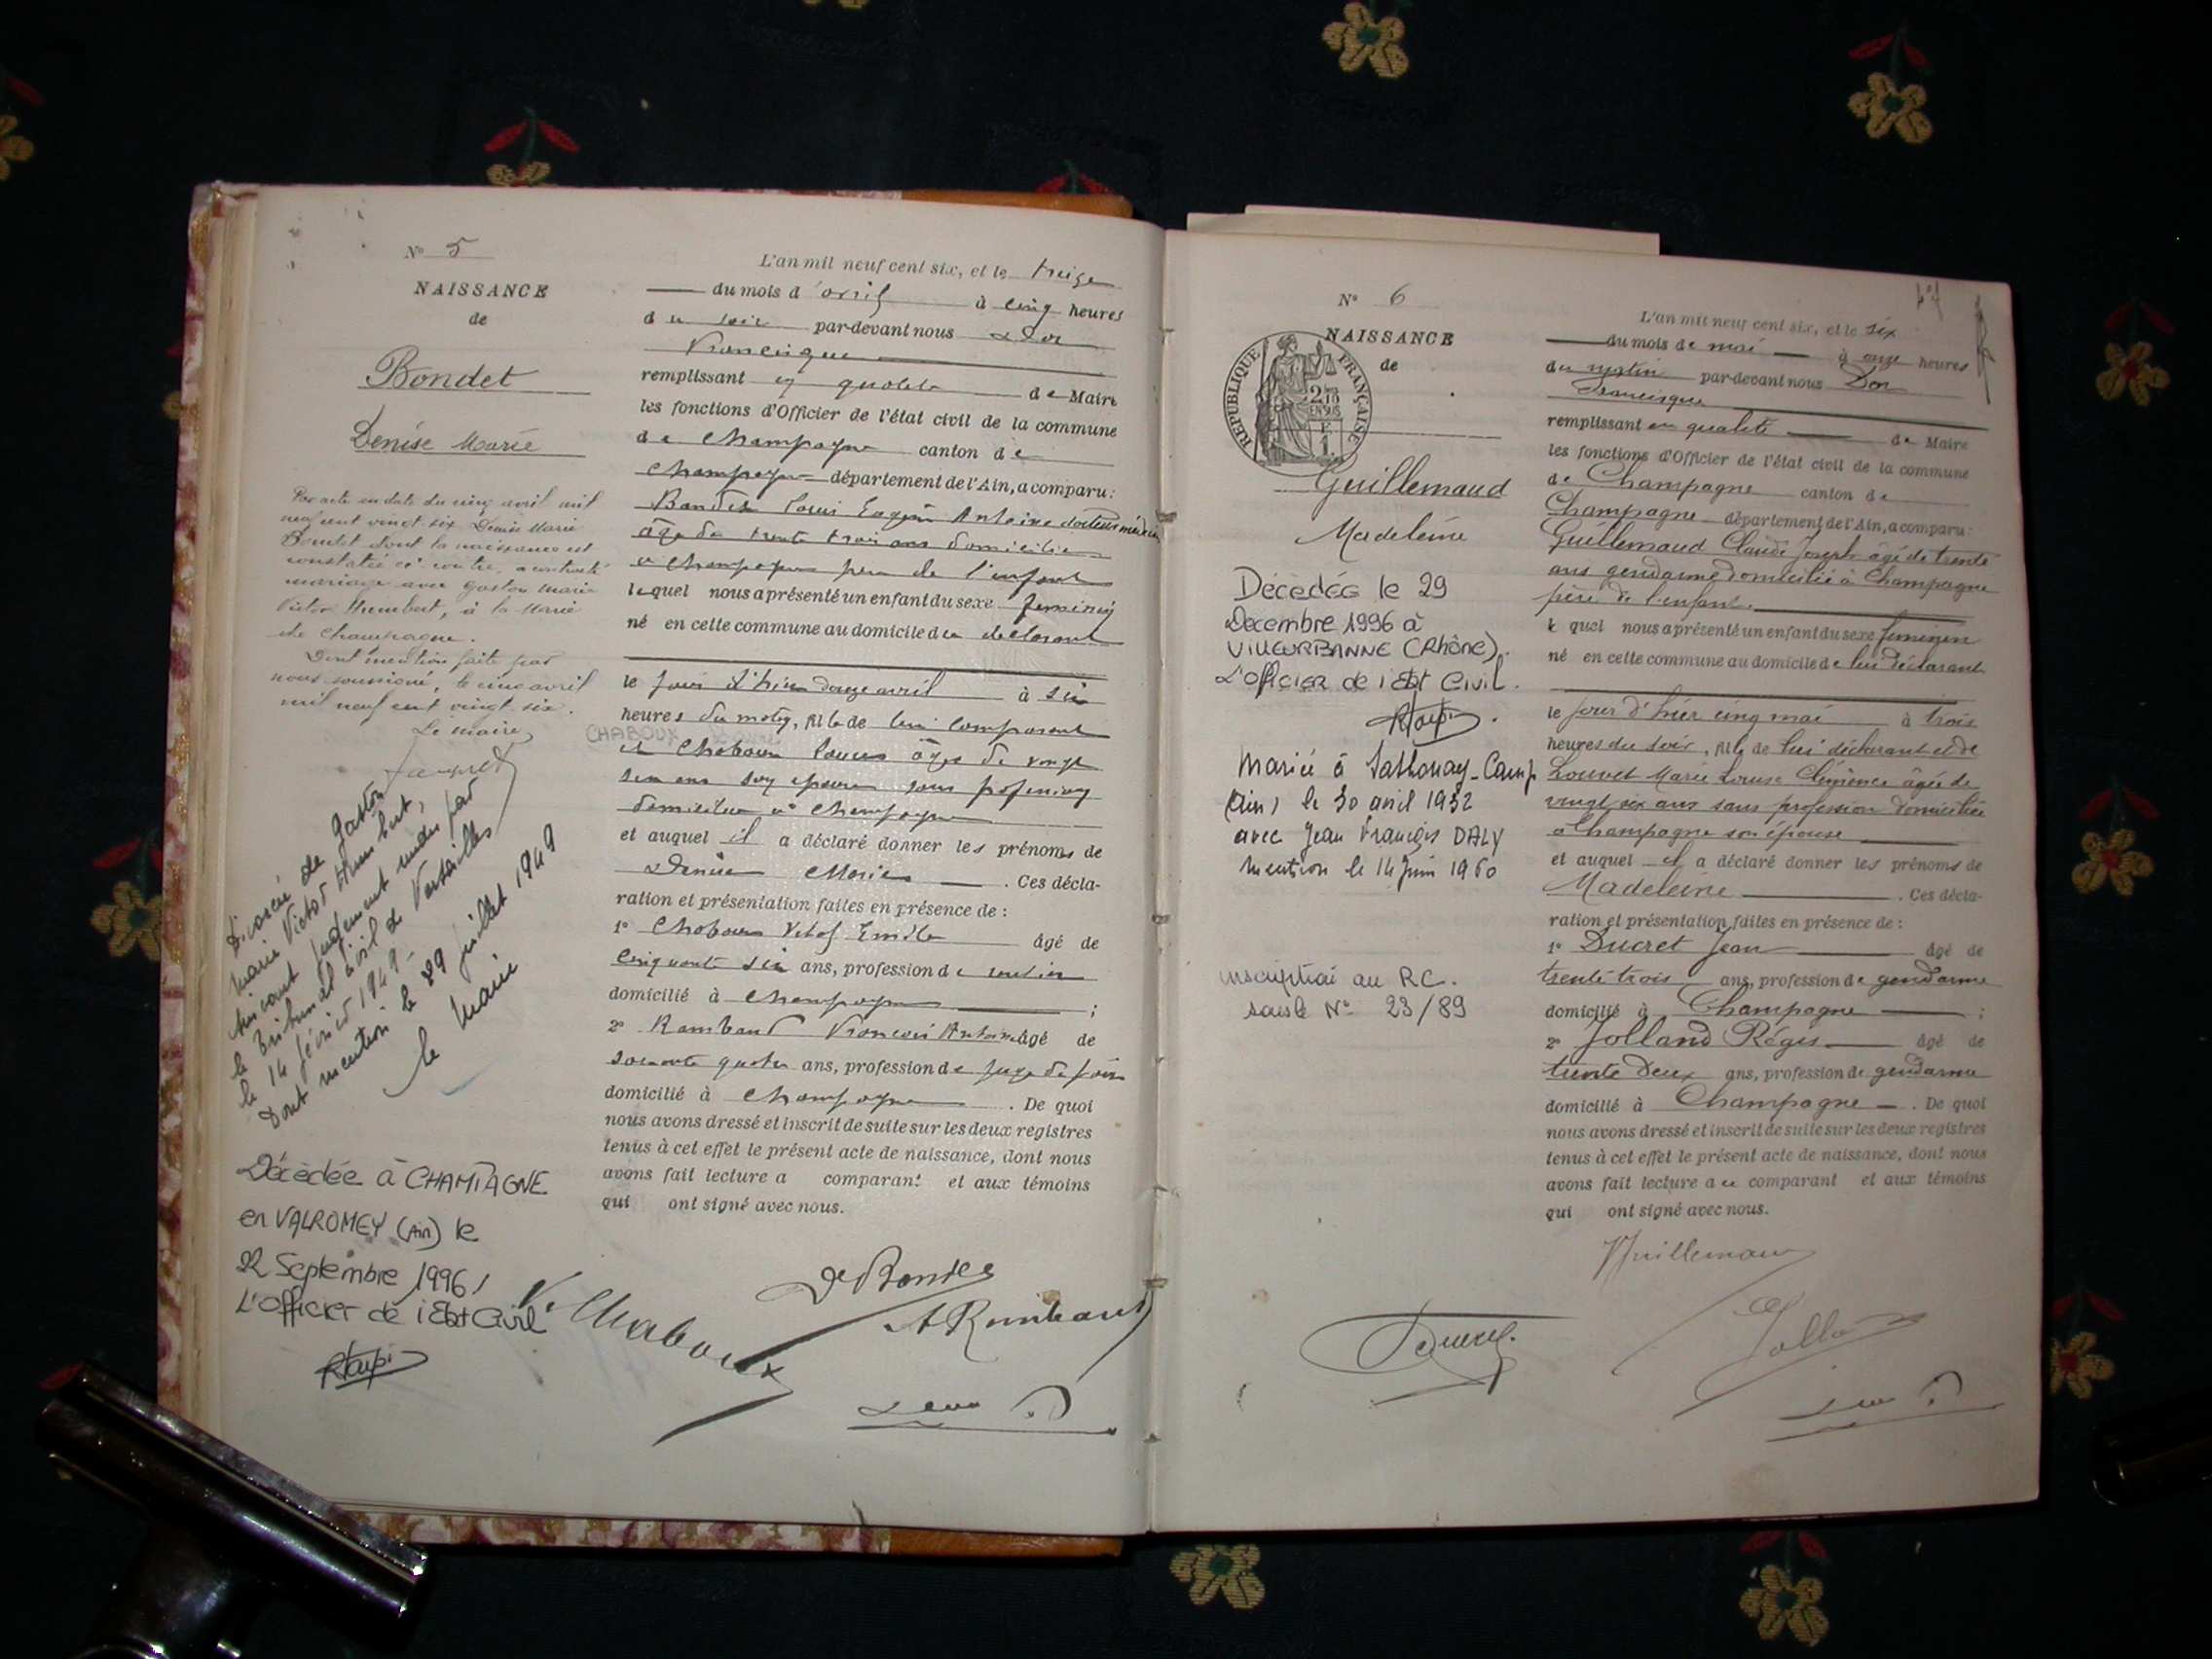 N° 5
NAISSANCE
de
Bondet
Denise Marie
Par acte en date du cinq avril mil
neuf cent vingt six Denise Marie
Bondet dont la naissance est
constatée ci contre, a contracté
mariage avec Gaston Marie
Victor Humbert, à la Mairie
de Champagne.
Dont mention faite par
nous soussigné, le cinq avril
mil neuf cent vingt six.
Le maire,
Divorcée de Gaston
Marie Victor Humbert,
suivant jugement rendu par
le Tribunal civil de Versailles
le 14 février 1949-
Dont mention le 29 juillet 1949
le Maire
Décèdée à CHAMPAGNE
en VALROMEY (Ain) le
22 Septembre 1996
L'officier de l'Etat Civil
L'an mil neuf cent six, et le treize
du mois d'avril à cinq heures
du soir par-devant nous Dor
Francisque
remplissant en qualité de Maire
les fonctions d'Officier de l'état civil de la commune
de Champagne canton de
Champagne département de l'Ain, a comparu:
Bondet Louis Eugène Antoine docteur médecin
âgé de trente trois ans domicilié
à Champagne père de l'enfant
lequel nous a présenté un enfant du sexe feminin
né en cette commune au domicile du déclarant
le jour d'hier douze avril à six
heures du matin, fille de lui comparant
CHABOUX
et Chaboux Louise âgée de vingt
six ans son épouse sans profession
domiciliée à Champagne
et auquel il a déclaré donner les prénoms de
Denise Marie. Ces décla-
ration et présentation faites en présence de :
1° Chaboux Vital Emile âgé de
cinquante six ans, profession de rentier
domicilié à Champagne ;
2° Rambaud François Antoine âgé de
soixante quatre ans, profession de juge de paix
domicilié à Champagne. De quoi
nous avons dressé et inscrit de suite sur les deux registres
tenus à cet effet le présent acte de naissance, dont nous
avons fait lecture a comparant et aux témoins
qui ont signé avec nous.
Dr Bondet
V. Chaboux
A Rambaud
N° 6
NAISSANCE
de
RÉPUBLIQUE FRANÇAISE
Guillemaud
Madeleine
Décèdée le 29
Décembre 1996 à
VILLEURBANNE (Rhône).
L'officier de l'Etat Civil.
Mariée à Sathonay-Camp
(Ain) le 30 avril 1932
avec Jean François DALY
Mention le 14 Juin 1960
inscription au RC.
sous le N° 23/89
L'an mil neuf cent six, et le six
du mois de mai à onze heures
du matin par-devant nous Dor
Francisque
remplissant en qualité de Maire
les fonctions d'Officier de l'état civil de la commune
de Champagne canton de
Champagne département de l'Ain, a comparu:
Guillemaud Claude Joseph âgé de trente
ans gendarme domicilié à Champagne
père de l'enfant.
lequel nous a présenté un enfant du sexe feminin
né en cette commune au domicile de lui déclarant
le jour d'hier cinq mai à trois
heures du soir, fille de lui déclarant et de
Louvet Marie Louise Clémence âgée de
vingt six ans sans profession domiciliée
à Champagne son épouse
et auquel il a déclaré donner les prénoms de
Madeleine. Ces décla-
ration et présentation faites en présence de :
1° Ducret Jean âgé de
trente trois ans, profession de gendarme
domicilié à Champagne ;
2° Jolland Régis âgé de
trente deux ans, profession de gendarme
domicilié à Champagne. De quoi
nous avons dressé et inscrit de suite sur les deux registres
tenus à cet effet le présent acte de naissance, dont nous
avons fait lecture au comparant et aux témoins
qui ont signé avec nous.
Guillemaud
Ducret